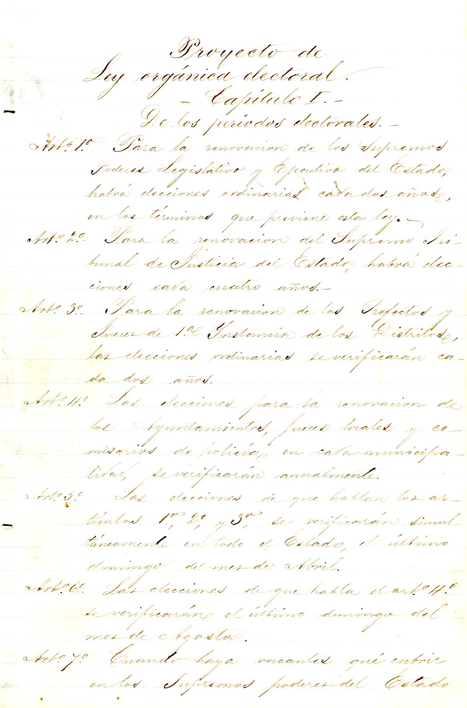 Proyecto de
Ley orgánica electoral.
- Capítulo I. -
De los períodos electorales. -
Art.º 1.º Para la renovacion de los Supremos
Poderes Legislativo y Ejecutivo del Estado,
habrá elecciones ordinarias cada dos años,
en los términos que previene esta ley. -
Art.º 2.º Para la renovacion del Supremo Tri-
bunal de Justicia del Estado, habrá elec-
ciones cada cuatro años. -
Art.º 3.º Para la renovacion de los Prefectos y
Jueces de 1.ª Instancia de los Distritos,
las elecciones ordinarias se verificarán ca-
da dos años.
Art.º 4.º Las elecciones para la renovacion de
los Ayuntamientos, jueces locales y co-
misarios de policía, en cada municipa-
lidad, se verificarán anualmente.
Art.º 5.º Las elecciones de que hablan los ar-
tículos 1.º, 2.º y 3.º se verificarán simul-
táneamente en todo el Estado, el último
domingo del mes de Abril.
Art.º 6.º Las elecciones de que habla el art.º 4.º
se verificarán el último domingo del
mes de Agosto.
Art.º 7.º Cuando haya vacantes qué cubrir
en los Supremos poderes del Estado